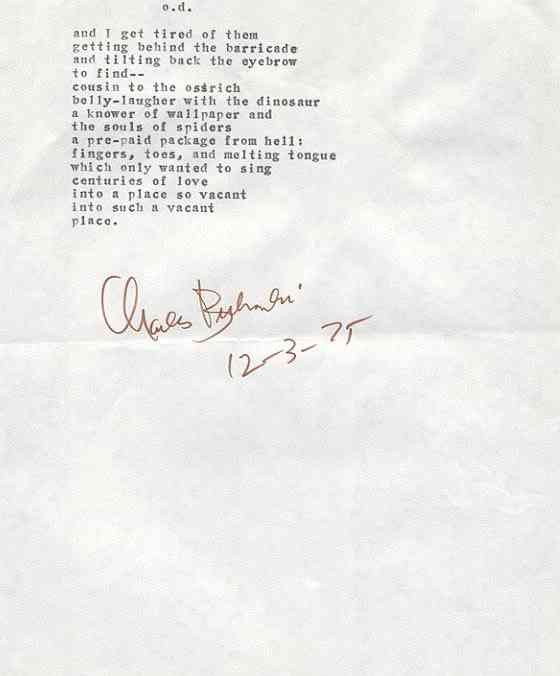 o.d.
and I get tired of them
getting behind the barricade
and tilting back the eyebrow
to find--
cousin to the ostrich
belly-laugher with the dinosaur
a knower of wallpaper and
the souls of spiders
a pre-paid package from hell:
fingers, toes, and melting tongue
which only wanted to sing
centuries of love
into a place so vacant
into such a vacant
place.
Charles Bukowski
12-3-75